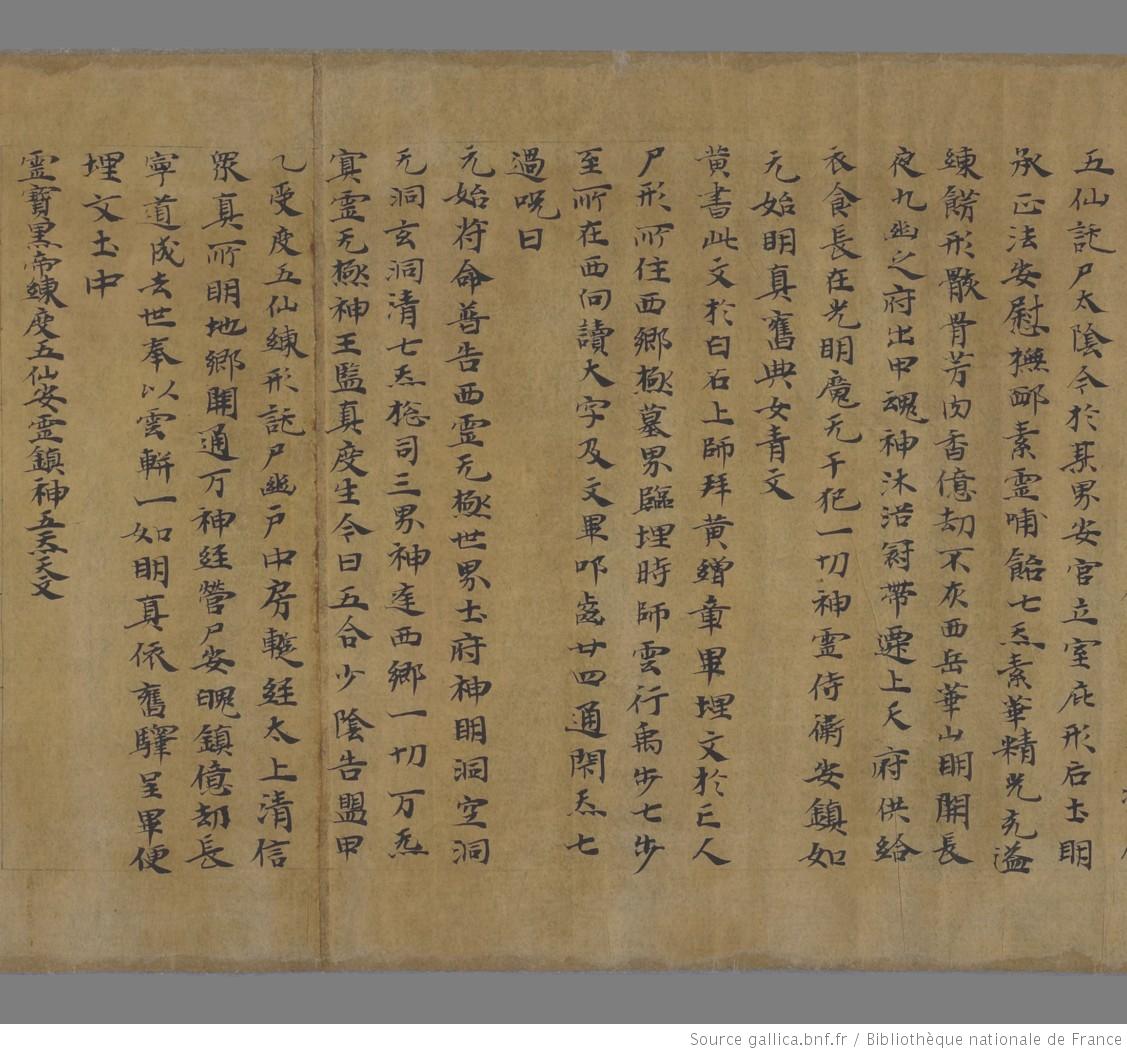 五仙託尸太陰今於某界安宮立室庇形后土明
承正法安慰撫卹素霊哺飴七炁素華精光充溢
練餝形骸骨芳肉香億劫不灰西岳華山明開長
夜九幽之府出甲魂神沐浴冠帶遷上天府供給
衣食長在光明魔无干犯一切神霊侍衛安鎮如
元始明真舊典女青文
黄書此文於白石上師拜黄繒章畢埋文於亡人
尸形所住西鄉極墓界臨埋時師雲行禹步七步
至所在西向讀大字及文畢叩齒廿四通閇炁七
過呪曰
元始符命普告西霊无極世界土府神明洞空洞
无洞玄洞清七炁揔司三界神逵西鄉一切万炁
寘霊无極神王監真度生今日五合少陰告盟甲
乙受度五仙練形託尸幽戸中房蹔経太上清信
衆真所明地鄉開通万神経營尸安魂鎮億劫長
寧道成去世奉以雲軿一如明真依舊驛呈畢便
埋文土中
霊寶黒帝練度五仙安霊鎮神五炁天文
Source gallica.bnf.fr / Bibliothèque nationale de France